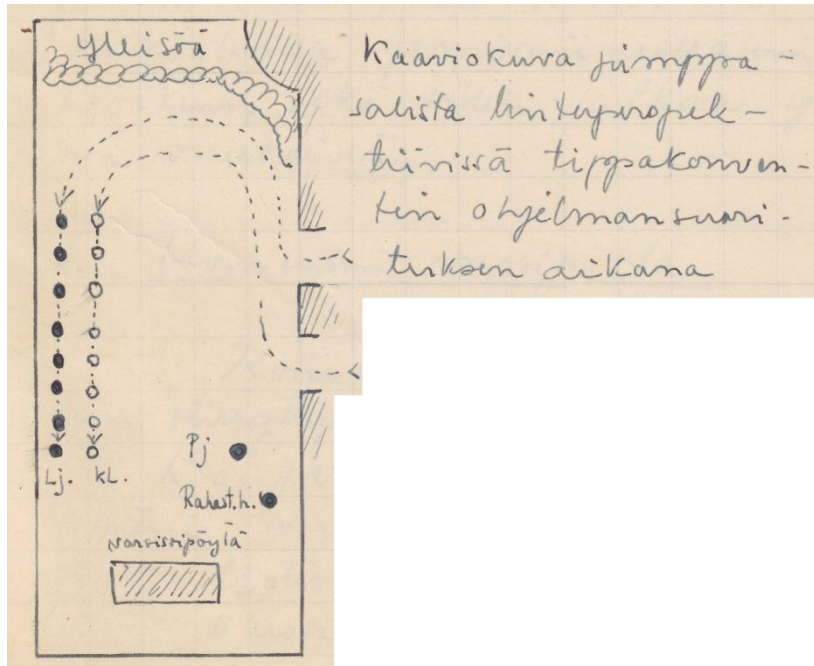 Yleisöä
Kaaviokuva jumppa-
salista lintuperspek-
tiivissä tippakonven-
tin ohjelmansuori-
tuksen aikana
Pj
Lj. KL.
Rahast.h.
Narsissipöytä